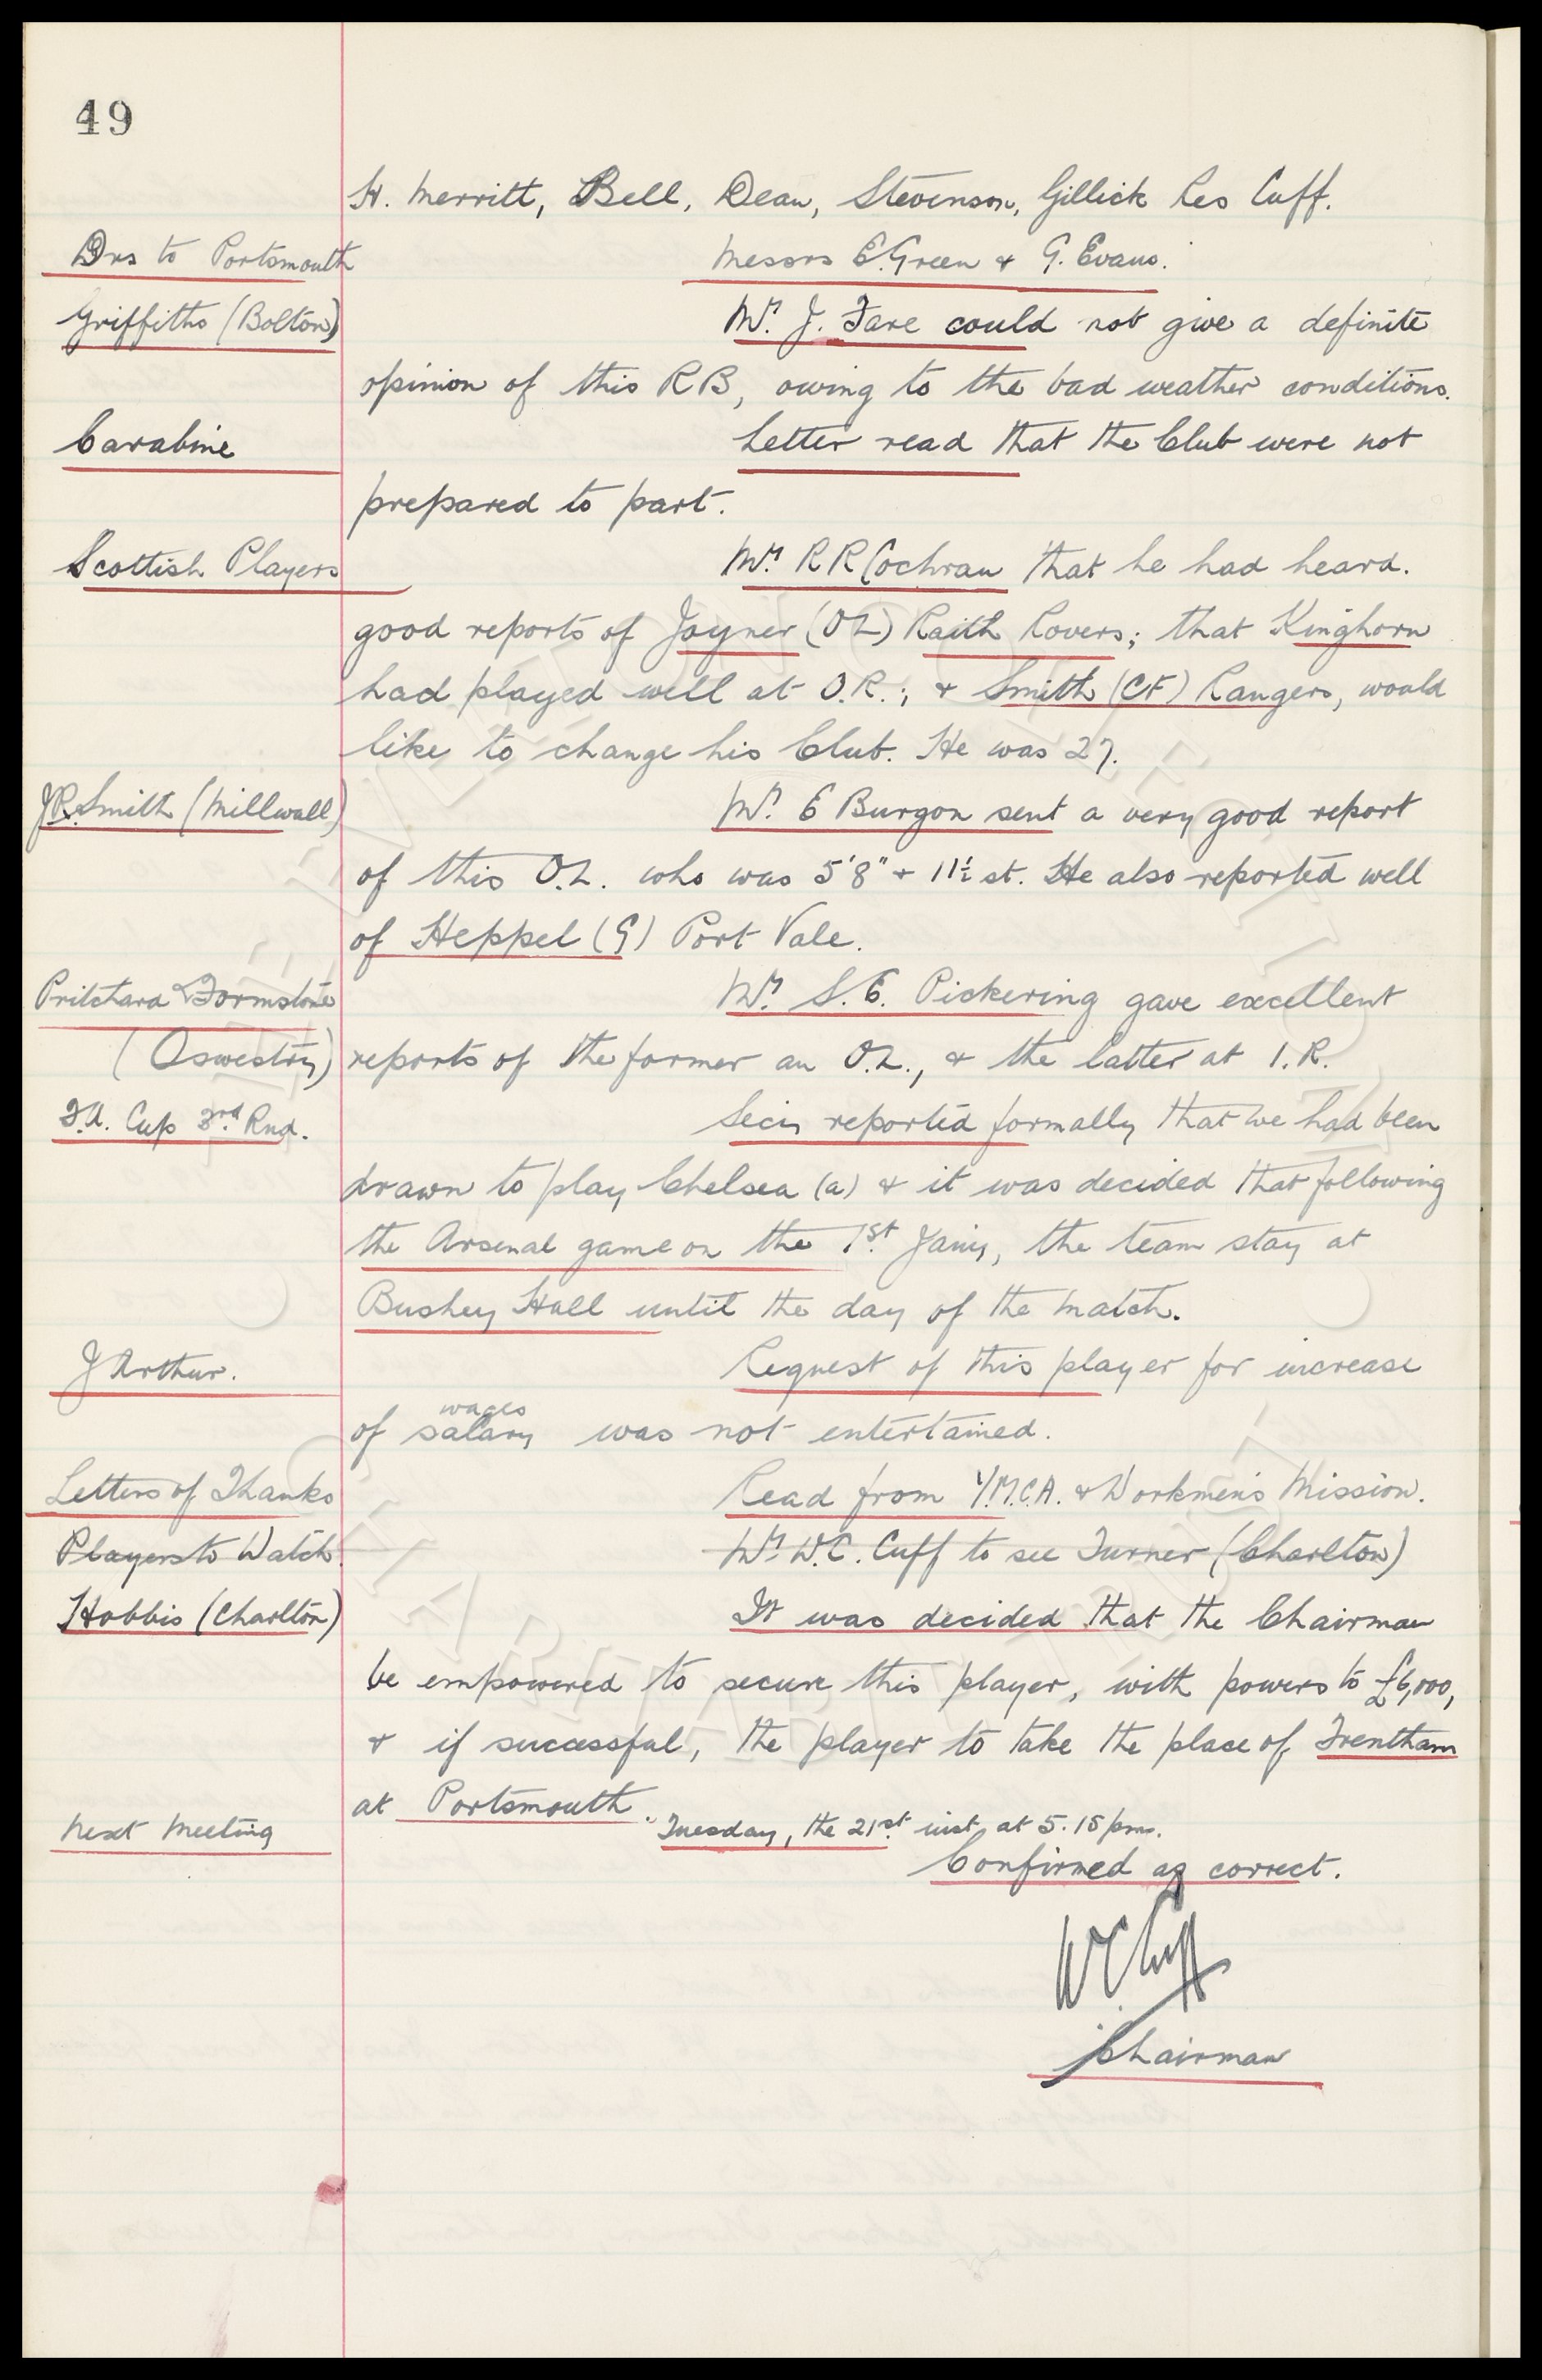 49
H. Merritt, Bell, Dean, Stevenson, Gillick Res Cuff.
Drs to Portsmouth Messrs E. Green & G. Evans.
Griffiths (Bolton) Mr. J. Fare could not give a definite
opinion of this RB, owing to the bad weather conditions.
Carabine Letter read that the Club were not
prepared to part.
Scottish Players Mr. R R Cochran that he had heard.
good reports of Joyner (OL) Raith Rovers; that Kinghorn
had played well at O.R.; & Smith (CF) Rangers, would
like to change his Club. He was 27.
JR. Smith (Millwall) Mr. E Burgon sent a very good report
of this O.L. who was 5'8" & 11½ st. He also reported well
of Heppel (G) Port Vale.
Pritchard & Formstone Mr. S. E. Pickering gave excellent
(Oswestry) reports of the former an O.L., & the latter at I.R.
F.A. Cup 3rd. Rnd. Secy reported formally that we had been
drawn to play Chelsea (a) & it was decided that following
the Arsenal game on the 1st. Jany, the team stay at
Bushey Hall until the day of the match.
J Arthur. Request of this player for increase
wages
of salary was not entertained.
Letters of Thanks Read from Y.M.C.A. & Workmen's Mission.
Players to Watch. Mr. W.C. Cuff to see Turner (Charlton)
Hobbis (Charlton) It was decided that the Chairman
be empowered to secure this player, with powers to £6,000,
& if successful, the player to take the place of Trentham
at Portsmouth.
Next Meeting Tuesday, the 21st. inst, at 5.15 pm.
Confirmed as correct.
W C Cuff
Chairman